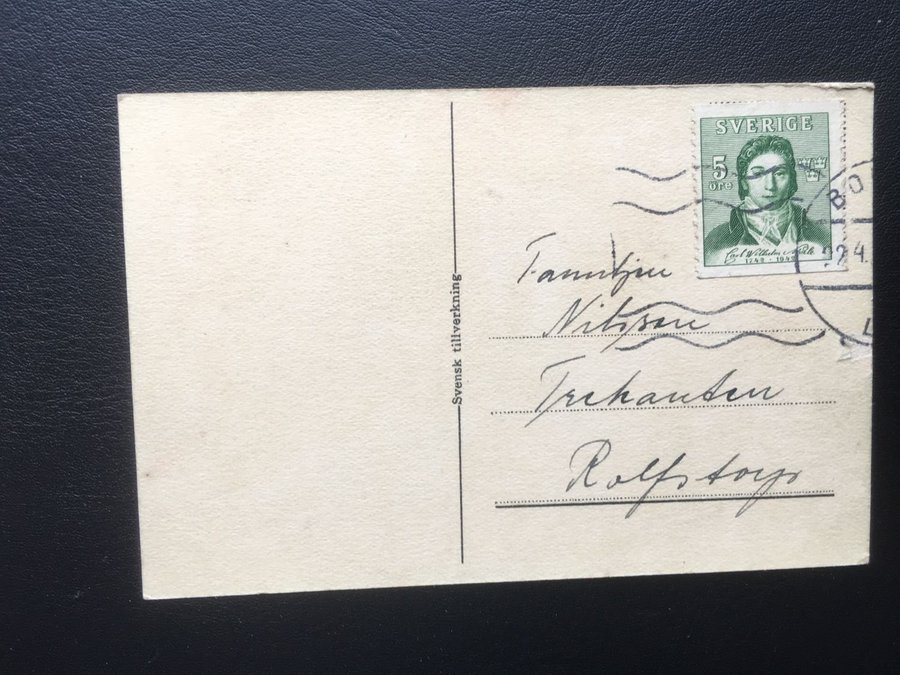 SVERIGE
5
öre
Carl Wilhelm Scheele
1742 · 1942
BO
24.
L
Familjen
Nilsson
Trekanten
Rolfstorp
Svensk tillverkning